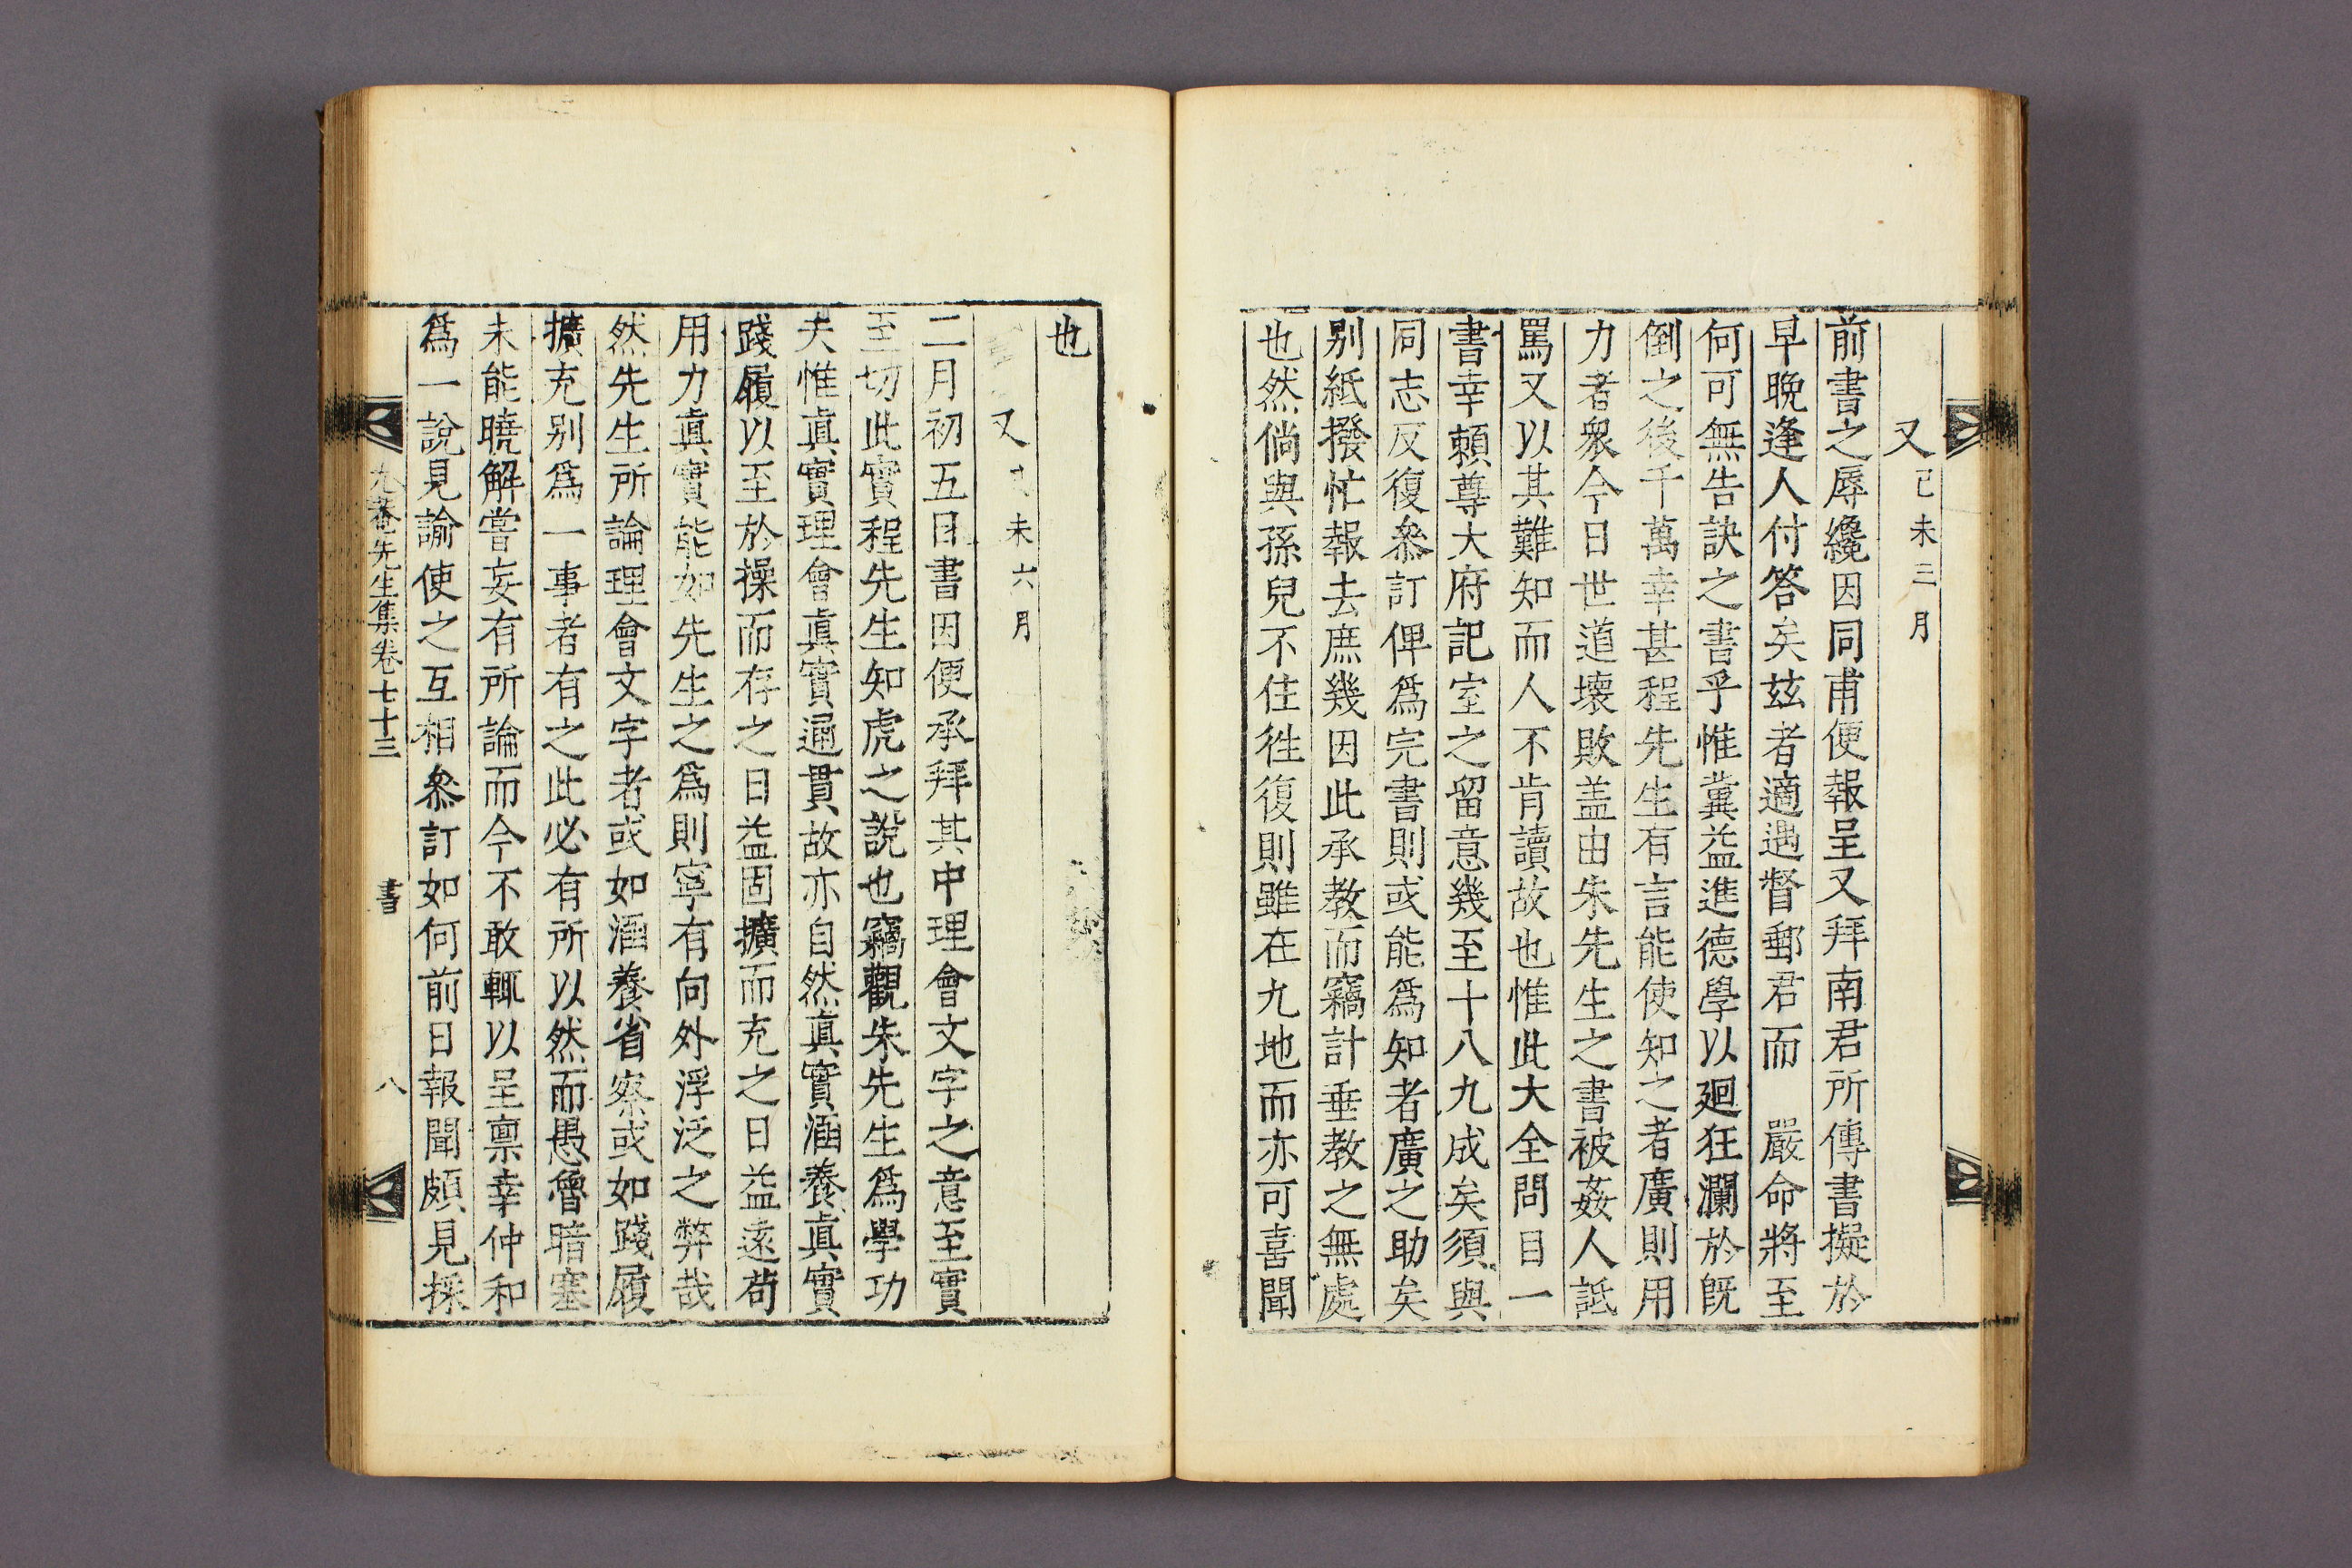 又 己未三月
前書之辱纔因同甫便報呈又拜南君所傳書擬於
早晚逢人付答矣玆者適遇督郵君而 嚴命將至
何可無告訣之書乎惟冀益進德學以廻狂瀾於旣
倒之後千萬幸甚程先生有言能使知之者廣則用
力者衆今日世道壞敗盖由朱先生之書被姦人詆
罵又以其難知而人不肯讀故也惟此大全問目一
書幸賴尊大府記室之留意幾至十八九成矣須與
同志反復叅訂俾爲完書則或能爲知者廣之助矣
别紙撥忙報去庶幾因此承教而竊計垂教之無處
也然倘與孫兒不住徃復則雖在九地而亦可喜聞
也
又 己未六月
二月初五日書因便承拜其中理會文字之意至實
至切此實程先生知虎之說也竊觀朱先生爲學功
夫惟眞實理會眞實通貫故亦自然眞實涵養眞實
踐履以至於操而存之日益固擴而充之日益遠苟
用力眞實能如先生之爲則寧有向外浮泛之弊哉
然先生所論理會文字者或如涵養省察或如踐履
擴充别爲一事者有之此必有所以然而愚魯暗塞
未能曉解嘗妄有所論而今不敢輒以呈禀幸仲和
爲一說見諭使之互相叅訂如何前日報聞頗見採
尤菴先生集卷七十三 書 八